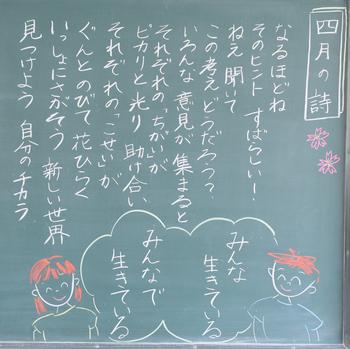 四月の詩
なるほどね
そのヒント すばらしい！
ねえ聞いて
この考えどうだろう？
いろんな意見が集まると
それぞれの「ちがい」が
ピカリと光り 助け合い
それぞれの「こせい」が
ぐんとのびて 花ひらく
いっしょにさがそう 新しい世界
見つけよう 自分のチカラ
みんな
生きている
みんなで
生きている